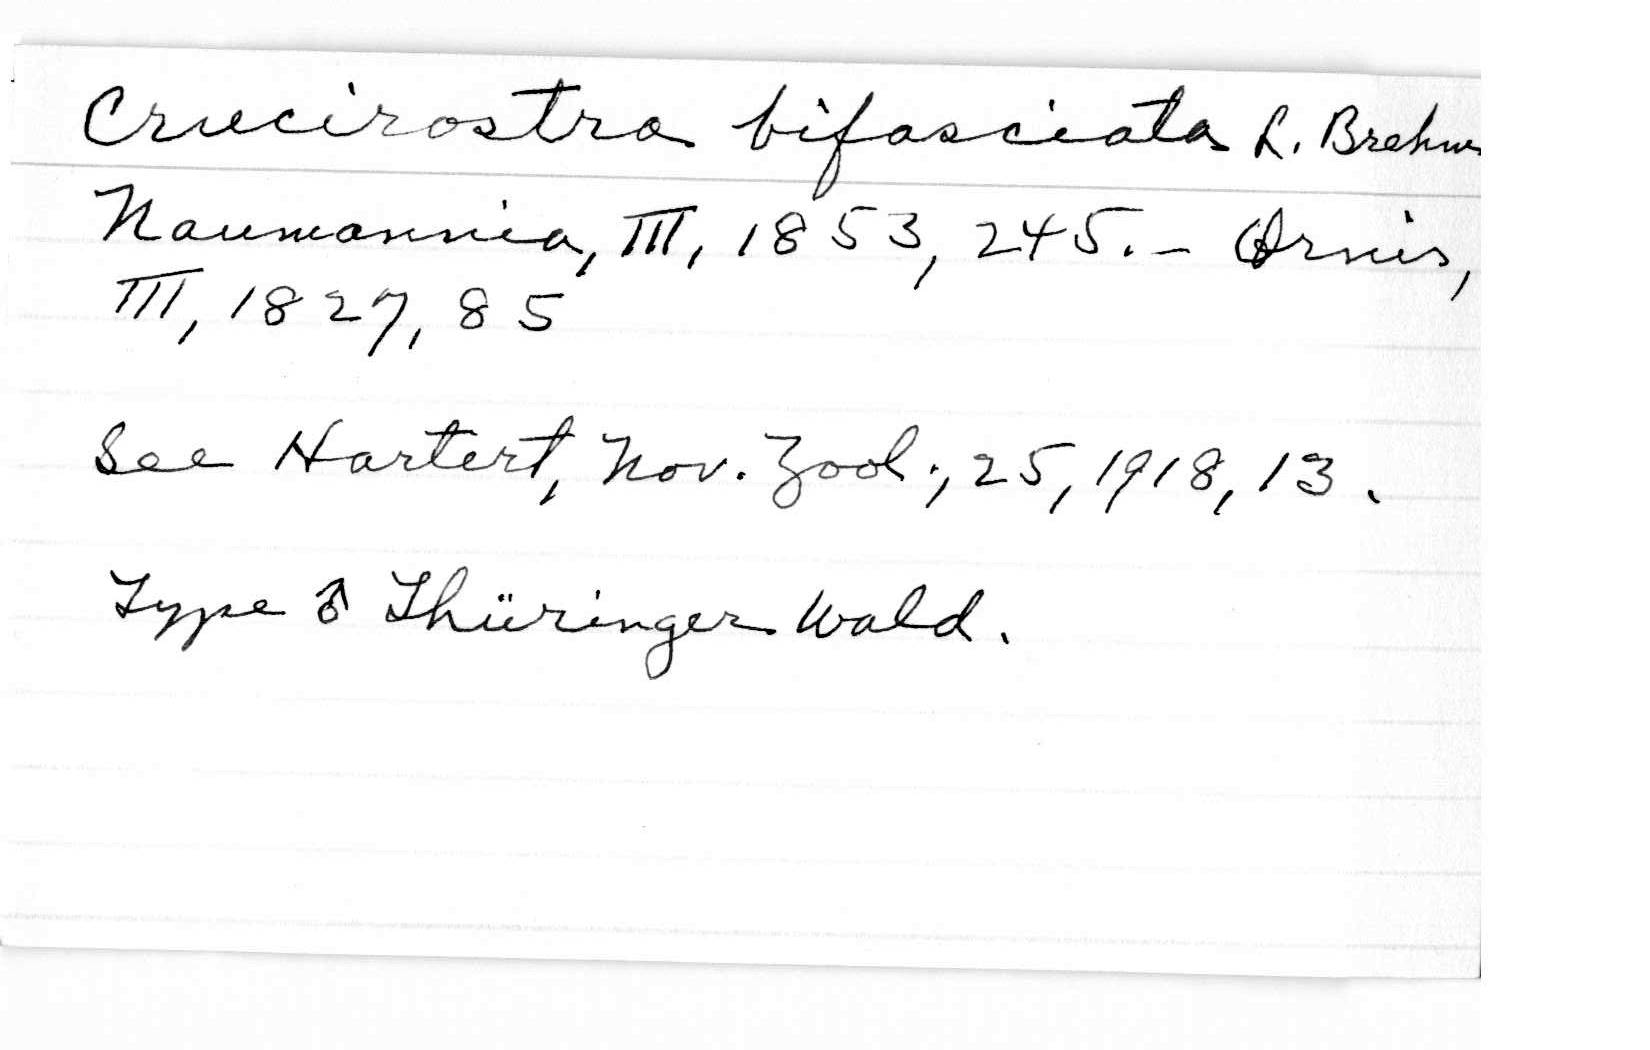 Crucirostra bifasciata L. Brehm
Naumannia, III, 1853, 245. – Ornis,
III, 1827, 85
See Hartert, Nov. Zool., 25, 1918, 13.
Type ♂ Thüringer Wald.